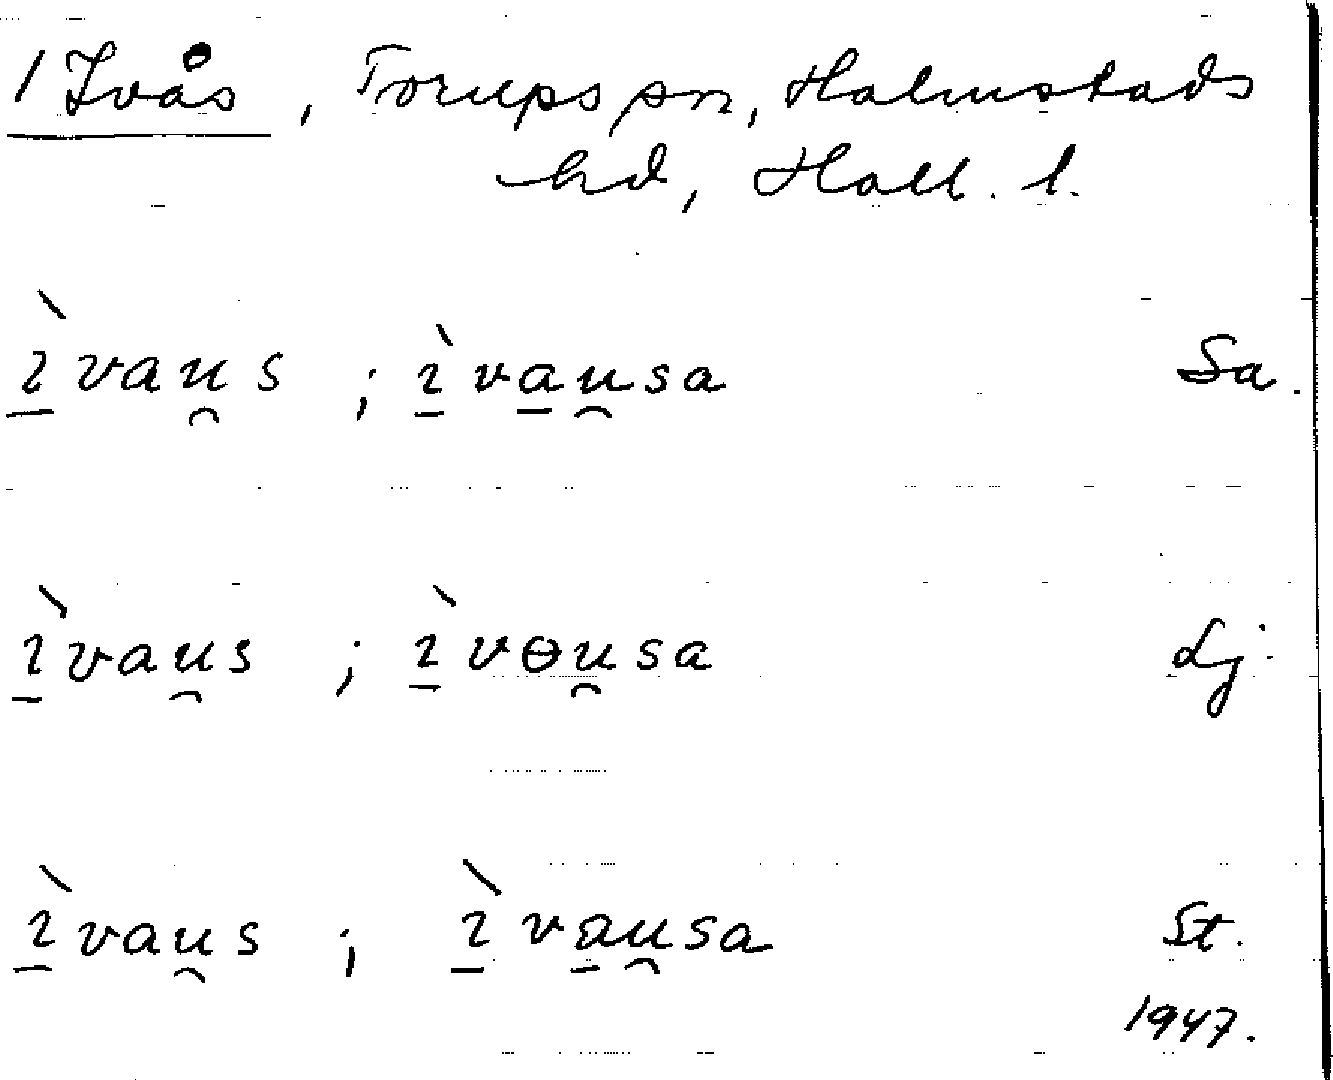 1 Ivås, Torups sn, Halmstads
hd, Hall. l.
ı̱̀vau̯s ; ı̱̀va̱u̯sa Sa.
ı̱̀vau̯s ; ı̱̀vɵu̯sa Lj.
ı̱̀vau̯s ; ı̱̀va̱u̯sa St.
1947.